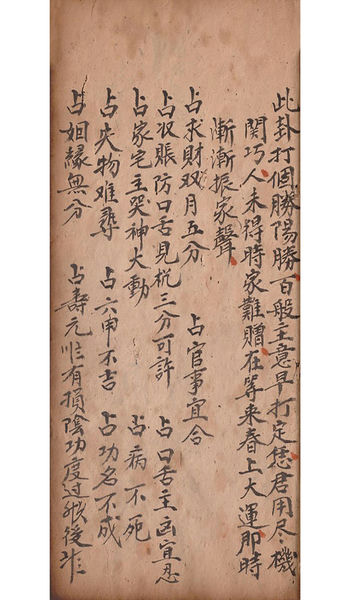 此卦打個勝陽勝百般主意早打定恁君用尽機
関巧人未得時家難贈在等来春上大運即時
漸漸振家聲
占求財双月五分 占官事宜合
占収賬防口舌見杭三分可許 占口舌主凶宜忍
占家宅主哭神大動 占病不死
占失物难尋 占六甲不吉 占功名不成
占姻縁無分 占壽元 有損陰功度过 後